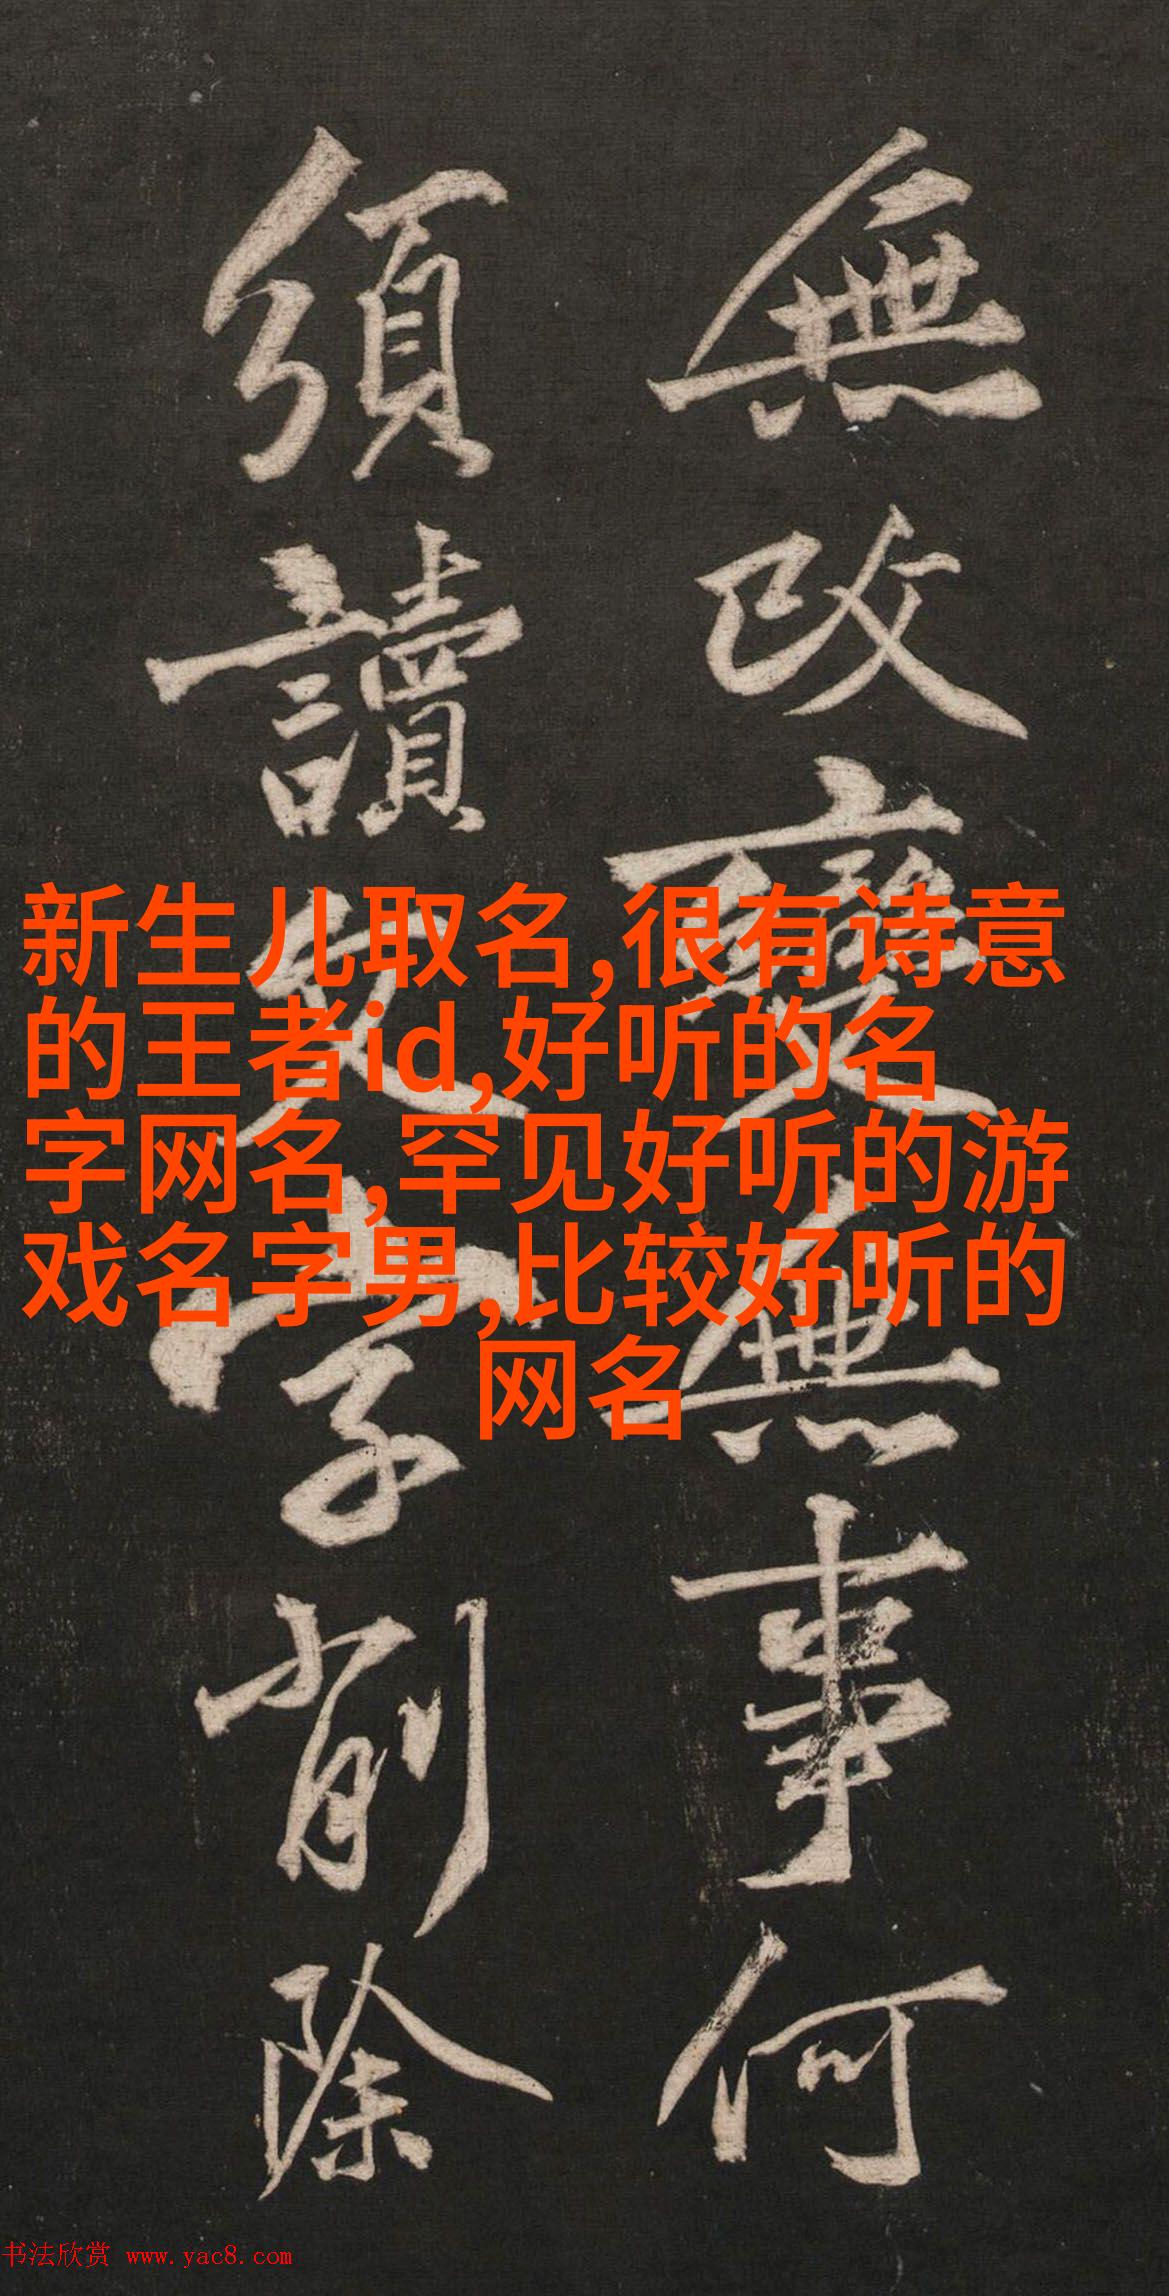 無改變無事何
須讀文字削除
新生儿取名,很有诗意
的王者id,好听的名
字网名,罕见好听的游
戏名字男,比较好听的
网名
书法欣赏 www.yac8.com